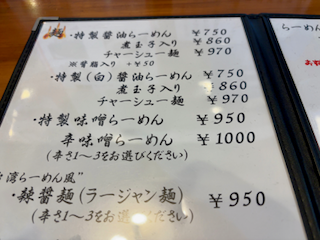 麺
・特製醤油らーめん ￥750
煮玉子入り ￥860
チャーシュー麺 ￥970
辣醤脂入り +￥50
・特製(白)醤油らーめん ￥750
煮玉子入り ￥860
チャーシュー麺 ￥970
・特製味噌らーめん ￥950
辛味噌らーめん ￥1000
(辛さ1〜3をお選びください)
湾らーめん風"
・辣醤麺(ラージャン麺) ￥950
(辛さ1〜3をお選びください)
らーめ